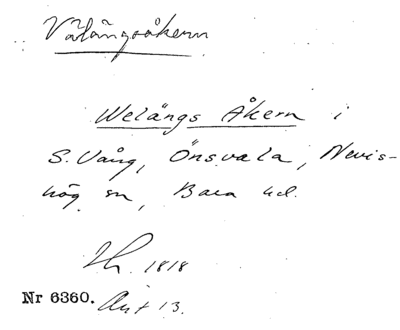 Välängsåkern
Welängs Åkern i
S. Vång, Önsvala, Nevis-
hög sn, Bara hd.
1818
Nr 6360. 13.